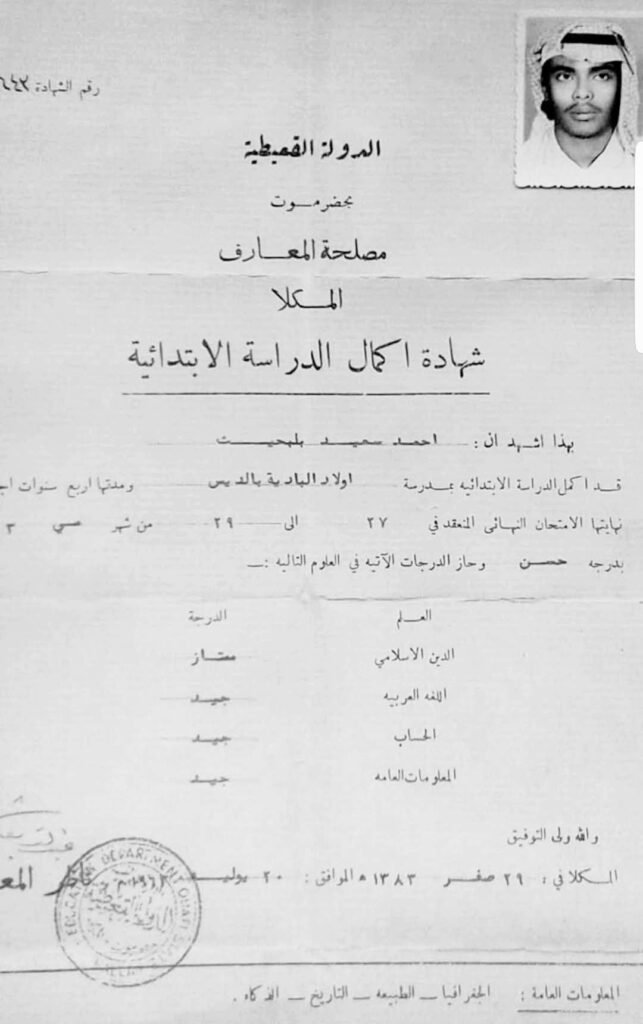 رقم الشهادة
الدولة القعيطية
بحضرموت
مصلحة المعارف
المكلا
شهادة اكمال الدراسة الابتدائية
بهذا اشهد ان : احمد سعيد بلبحيث
قد اكمل الدراسة الابتدائيه بمدرسة اولاد البادية بالديس ومدتها اربع سنوات
نهايتها الامتحان النهائى المنعقد في ٢٧ الى ٢٩ من شهر مي ٣
بدرجه حسن وحاز الدرجات الآتيه في العلوم التاليه :
العلم الدرجة
الدين الاسلامي ممتاز
اللغه العربيه جيد
الحساب جيد
المعلومات العامه جيد
والله ولى التوفيق
المكلا في : ٢٩ صفر ١٣٨٣ ه الموافق : ٢٠ يوليه
EDUCATION DEPARTMENT
المعلومات العامة : الجغرافيا – الطبيعه – التاريخ – الذكاء .